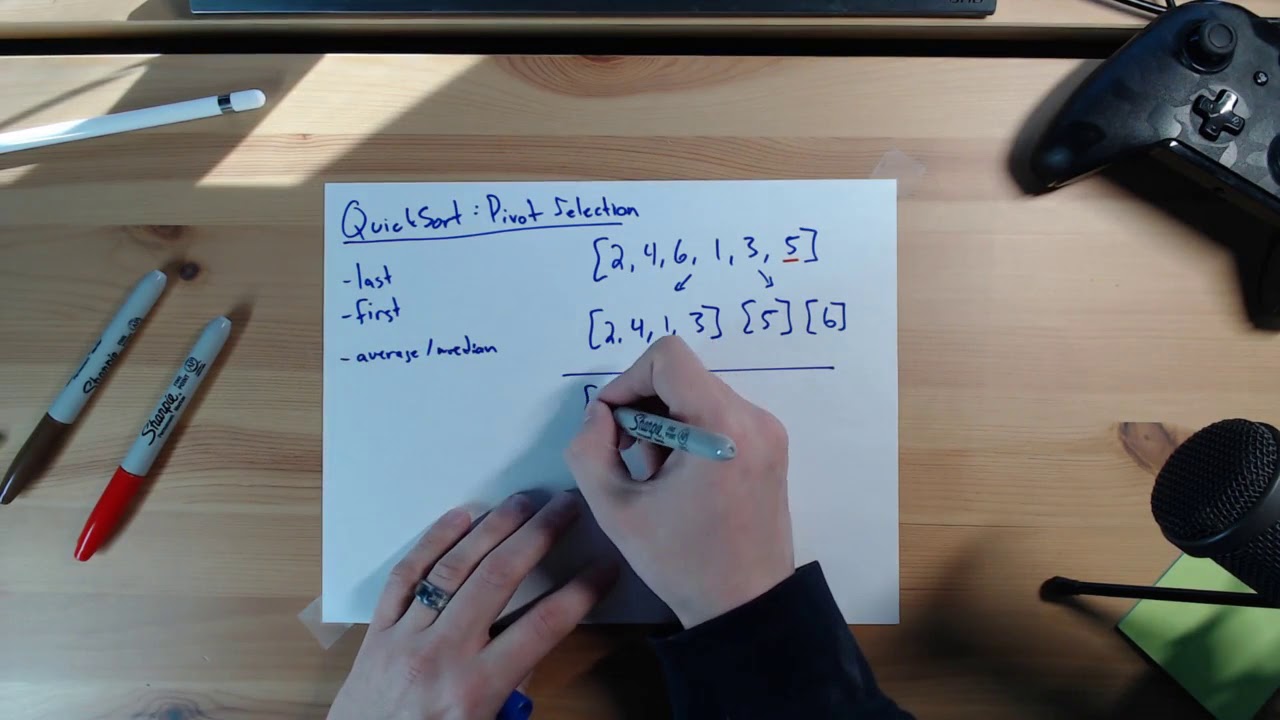 QuickSort: Pivot Selection
- last
- first
- average/median
[2, 4, 6, 1, 3, 5]
[2, 4, 1, 3] [5] [6]
[
Sharpie
Sharpie
Sharpie